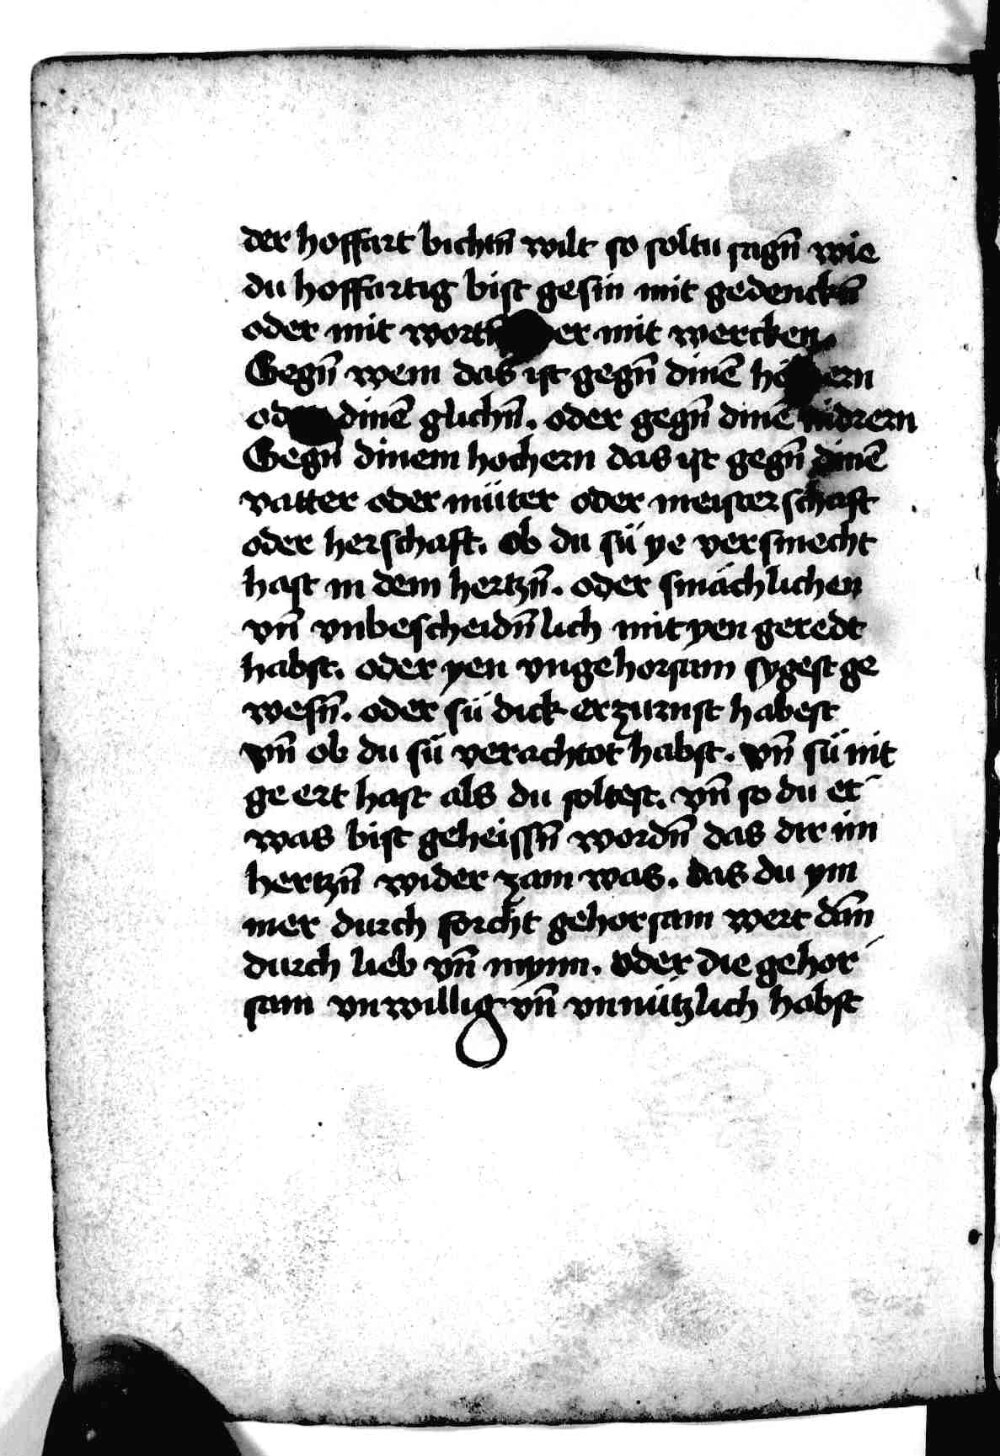 der hoffart bichtn̄ wilt so soltu sagn̄ wie
du hoffartig bist gesin mit gedenckn̄
oder mit mit wercken.
Gegn̄ wem das ist gegn̄ dinē
dinē glichn̄. oder gegn̄ dinē nidrern
Gegn̄ dinem hochern das ist gegn̄ dinē
vatter oder müter oder meisterschaft
oder herschaft. ob du sü ye versmecht
hast in dem hertzn̄. oder smächlichen
vn̄ vnbescheidn̄lich mit yen geredt
habst. oder yen vngehorsam sygest ge
wesn̄. oder sü dick erzurnst habest
vn̄ ob du sü verachtot habst. vn̄ sü nit
ge ert hast als du soltest. vn̄ so du et
was bist geheissn̄ wordn̄ das dir im
hertzn̄ wider zam was. das du ym
mer durch forcht gehorsam wert dān
durch lieb vn̄ mynn. oder die gehor
sam vnwillig vn̄ vnnützlich habst